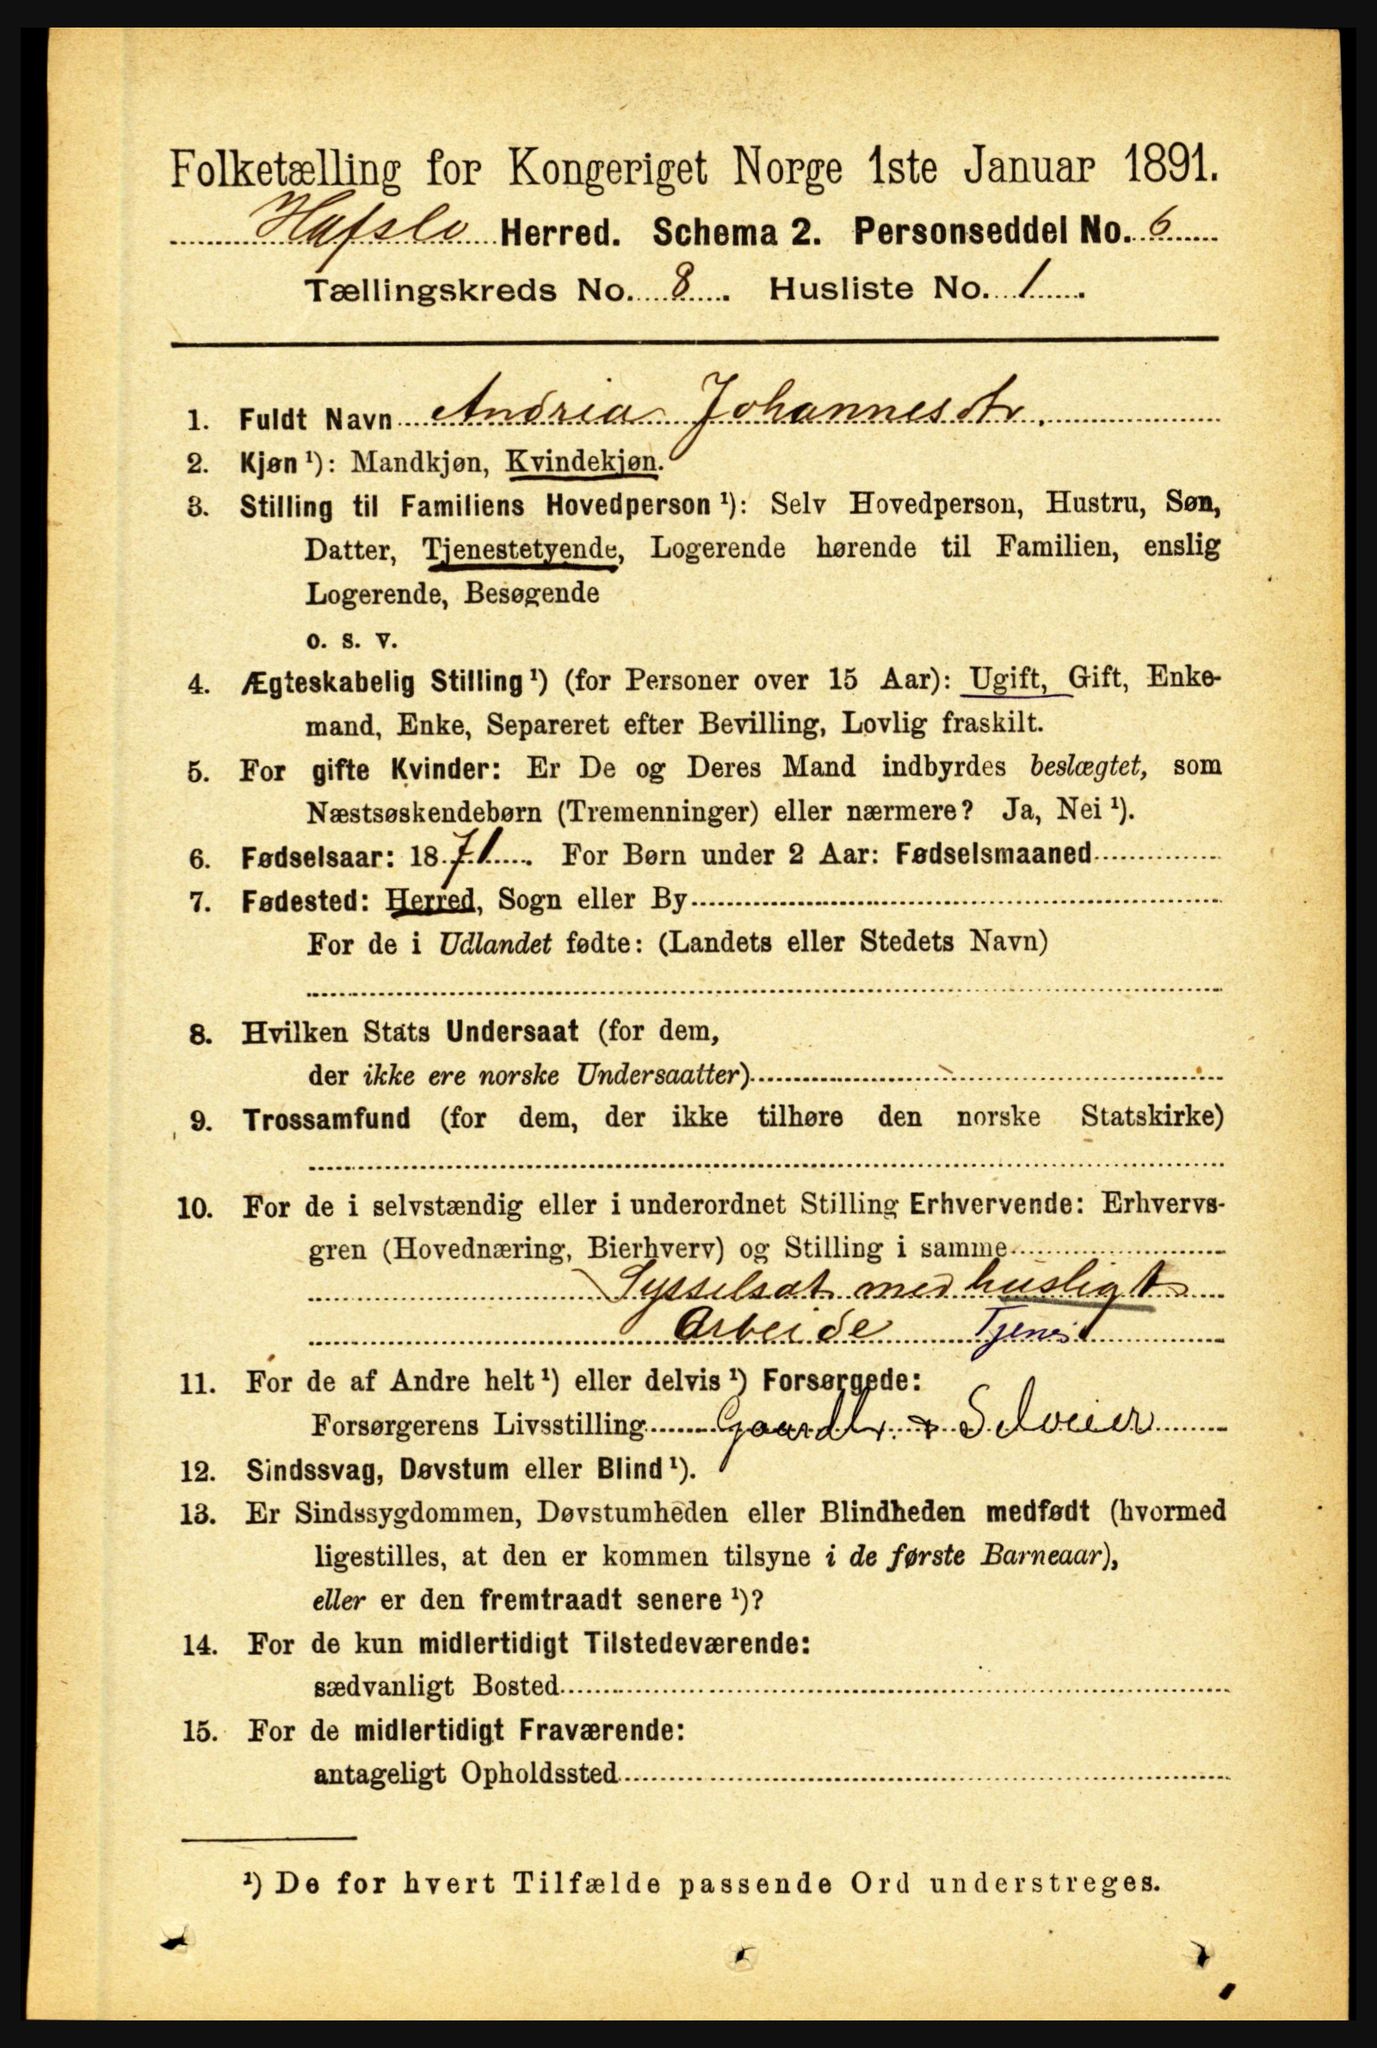 Folketælling for Kongeriget Norge 1ste Januar 1891.
Hafslo Herred. Schema 2. Personseddel No. 6
Tællingskreds No. 8. Husliste No. 1.
1. Fuldt Navn Andria Johannesdtr.
2. Kjøn ¹): Mandkjøn, Kvindekjøn.
3. Stilling til Familiens Hovedperson ¹): Selv Hovedperson, Hustru, Søn,
Datter, Tjenestetyende, Logerende hørende til Familien, enslig
Logerende, Besøgende
o. s. v.
4. Ægteskabelig Stilling ¹) (for Personer over 15 Aar): Ugift, Gift, Enke-
mand, Enke, Separeret efter Bevilling, Lovlig fraskilt.
5. For gifte Kvinder: Er De og Deres Mand indbyrdes beslægtet, som
Næstsøskendebørn (Tremenninger) eller nærmere? Ja, Nei ¹).
6. Fødselsaar: 1871. For Børn under 2 Aar: Fødselsmaaned
7. Fødested: Herred, Sogn eller By
For de i Udlandet fødte: (Landets eller Stedets Navn)
8. Hvilken Stats Undersaat (for dem,
der ikke ere norske Undersaatter)
9. Trossamfund (for dem, der ikke tilhøre den norske Statskirke)
10. For de i selvstændig eller i underordnet Stilling Erhvervende: Erhvervs-
gren (Hovednæring, Bierhverv) og Stilling i samme
Sysselsat med husligt
Arbeide Tjenest
11. For de af Andre helt ¹) eller delvis ¹) Forsørgede:
Forsørgerens Livsstilling Gaardbr. & Selveier
12. Sindssvag, Døvstum eller Blind ¹).
13. Er Sindssygdommen, Døvstumheden eller Blindheden medfødt (hvormed
ligestilles, at den er kommen tilsyne i de første Barneaar),
eller er den fremtraadt senere ¹)?
14. For de kun midlertidigt Tilstedeværende:
sædvanligt Bosted
15. For de midlertidigt Fraværende:
antageligt Opholdssted
¹) De for hvert Tilfælde passende Ord understreges.